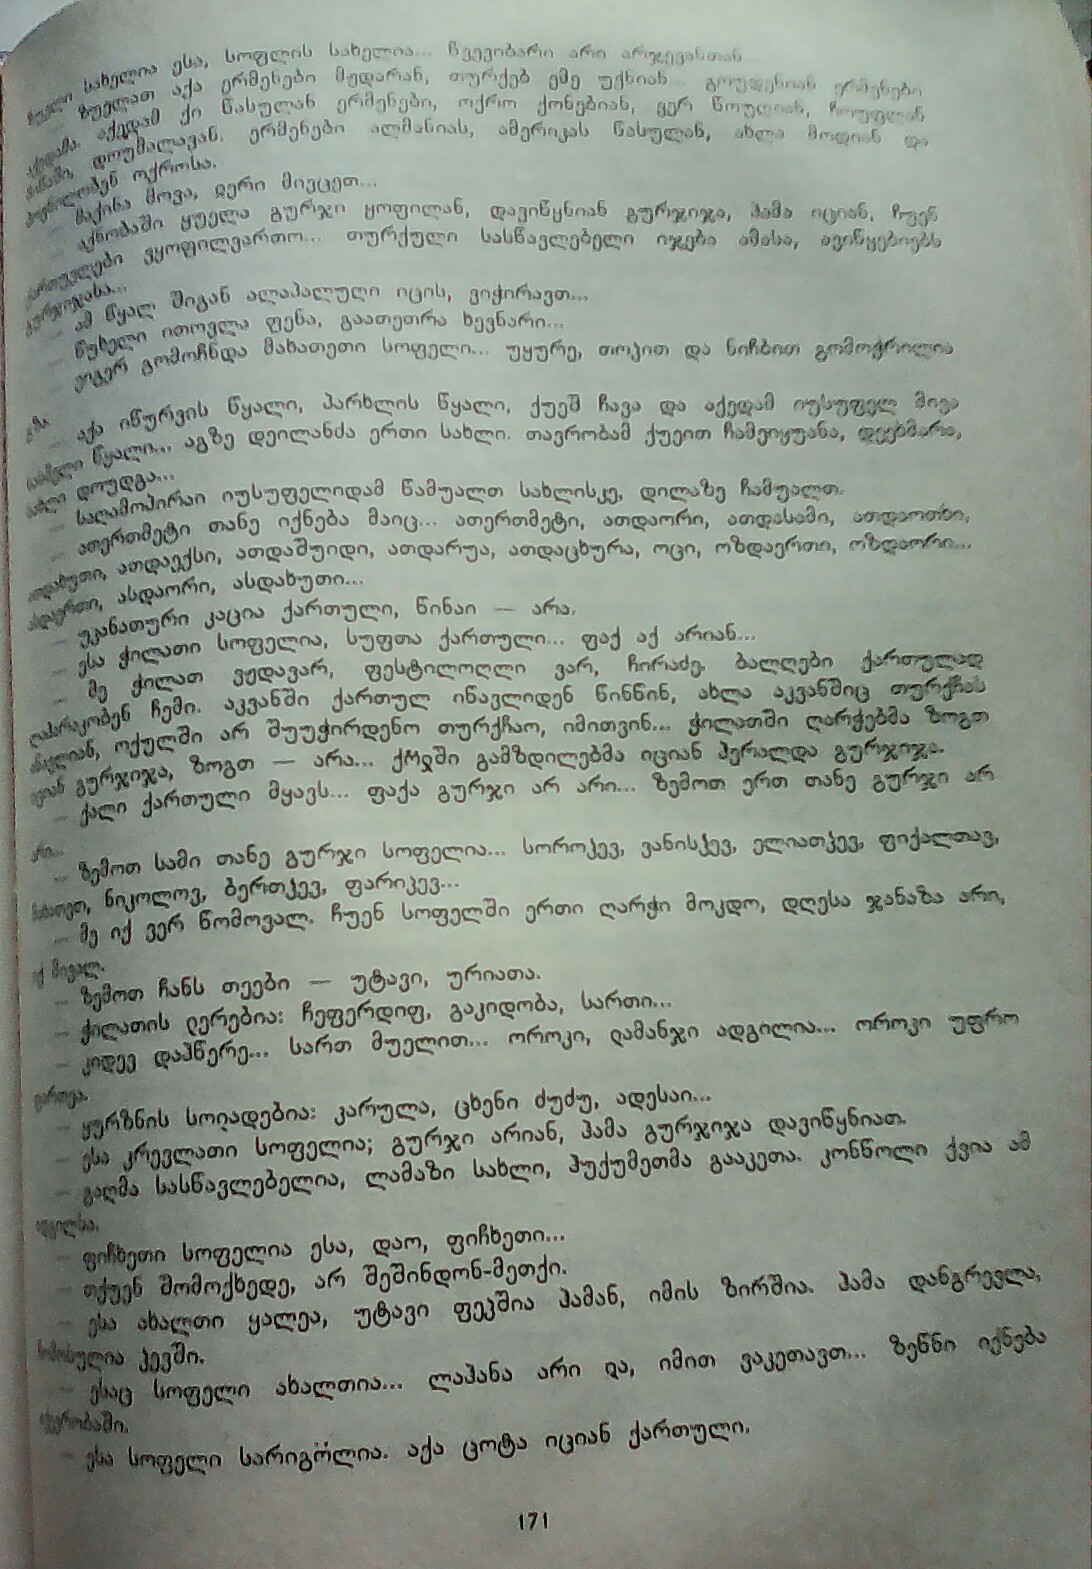 სახელია ესა, სოფლის სახელია... წვევიბარი არი არჯევანთან...
— ზუელათ აქა ერმენები მჯდარან, თურქებ ემე უქნიან... გოუდენიან ერმენები
აქედამ. აქედამ ქი წასულან ერმენები, ოქრო ქონებიან, ვერ წოუღიან, ჩოუფლან
დოუმალავან. ერმენები ალმანიას, ამერიკას წასულან, ახლა მოდიან და
ოქროსა.
— მაქინა მოვა, ჲერი მივცეთ...
— აქნობაში ყუელა გურჯი ყოფილან, დავიწყნიან გურჯიჯა, ჰამა იციან, ჩუენ
ქართველები ვყოფილვართო... თურქული სასწავლებელი იჯება ამასა, ავიწყებიებს
გურჯიჯასა...
— ამ წყალ შიგან ალაპალუღი იცის, ვიჭირავთ...
— წუხელი ითოვლა ფენა, გაათეთრა ხევნარი...
— ჲოგერ გომოჩნდა მახათეთი სოფელი... უყურე, თოკით და ნიჩბით გომოჭრილია
გზა
— აქა იწურვის წყალი, პარხლის წყალი, ქუეშ ჩავა და აქედამ იუსუფელ მივა
წყალი... აგზე დეილანძა ერთი სახლი. თავრობამ ქუეით ჩამეიყუანა, დეეხმარა,
სახლი დოუდგა...
— საღამოპირაი იუსუფელიდამ წამუალთ სახლისკე, დილაზე ჩამუალთ.
— ათერთმეტი თანე იქნება მაიც... ათერთმეტი, ათდაორი, ათდასამი, ათდაოთხი,
ათდახუთი, ათდაექსი, ათდაშუიდი, ათდარუა, ათდაცხურა, ოცი, ოზდაერთი, ოზდაორი...
ასდაერთი, ასდაორი, ასდახუთი...
— უკანათური კაცია ქართული, წინაი — არა.
— ესა ჭილათი სოფელია, სუფთა ქართული... ფაქ აქ არიან...
— მე ჭილათ ვედავარ, ფესტილოღლი ვარ, ჩირაძე. ბალღები ქართულად
ლაპარაკობენ ჩემი. აკვანში ქართულ ინავლიდენ წინწინ, ახლა აკვანშიც თურქჩას
ინავლიან, ოქულში არ შუუჭირდენო თურქჩაო, იმითვინ... ჭილათში ღარჭებმა ზოგთ
იციან გურჯიჯა, ზოგთ — არა... ქოჲში გამზდილებმა იციან ჰერალდა გურჯიჯა.
— ქალი ქართული მყავს... ფაქა გურჯი არ არი... ზემოთ ერთ თანე გურჯი არ
არი...
— ზემოთ სამი თანე გურჯი სოფელია... სოროკევ, ვანისჰევ, ელიათჰევ, ფიქალთავ,
მახათეთ, ნიკოლოვ, ბერთჰევ, ფარიკევ...
— მე იქ ვერ წომოვალ. ჩუენ სოფელში ერთი ღარჭი მოკდო, დღესა ჯანაზა არი,
იქ მივალ.
— ზემოთ ჩანს თეები — უტავი, ურიათა.
— ჭილათის ჲერებია: ჩეფერდიფ, გაკიდობა, სართი...
— კიდევ დაჰწერე... სართ მუელით... ოროკი, ჲამანჯი ადგილია... ოროკი უფრო
ფართეა.
— ყურზნის სოჲადებია: კარულა, ცხენი ძუძუ, ადესაი...
— ესა კრევლათი სოფელია; გურჯი არიან, ჰამა გურჯიჯა დავიწყნიათ.
— გაღმა სასწავლებელია, ლამაზი სახლი, ჰუქუმეთმა გააკეთა. კონწოლი ქვია ამ
ადგილსა.
— ფიჩხეთი სოფელია ესა, დაო, ფიჩხეთი...
— თქუენ შომოქხედე, არ შეშინდონ-მეთქი.
— ესა ახალთი ყალეა, უტავი ფეკშია ჰამან, იმის ზირშია. ჰამა დანგრევლა,
ჰევში.
— ესაც სოფელი ახალთია... ლაჰანა არი ჲა, იმით ვაკეთავთ... ზეწნი იქნება
აჭერობაში.
— ესა სოფელი სარიგოლია. აქა ცოტა იციან ქართული.
171